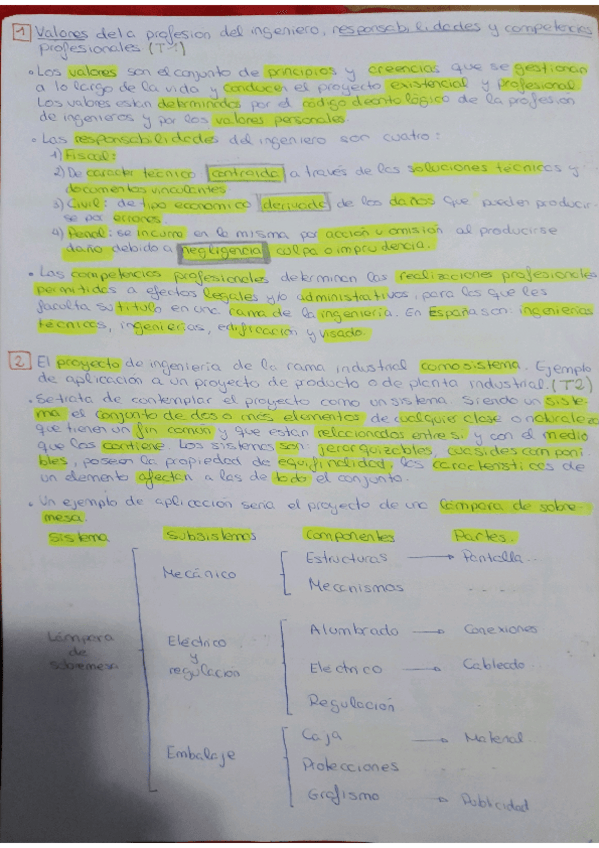 1 Valores de la profesión del ingeniero, responsabilidades y competencias
profesionales (T1)
• Los valores son el conjunto de principios y creencias que se gestionan
a lo largo de la vida y conducen el proyecto existencial y profesional.
Los valores están determinados por el código deontológico de la profesión
de ingenieros y por los valores personales.
• Las responsabilidades del ingeniero son cuatro:
1) Fiscal:
2) De carácter técnico contraída a través de las soluciones técnicas y
documentos vinculantes.
3) Civil: de tipo económico derivada de los daños que pueden producir-
se por errores.
4) Penal: se incurre en la misma por acción u omisión al producirse
daño debido a negligencia culpa o imprudencia.
• Las competencias profesionales determinan las realizaciones profesionales
permitidas a efectos legales y/o administrativos, para los que les
faculta su título en una rama de la ingeniería. En España son: ingenierías
técnicas, ingenierías, edificación y visado.
2 El proyecto de ingeniería de la rama industrial como sistema. Ejemplo
de aplicación a un proyecto de producto o de planta industrial. (T2)
• Se trata de contemplar el proyecto como un sistema. Siendo un siste-
ma el conjunto de dos o más elementos de cualquier clase o naturaleza
que tienen un fin común y que están relacionados entre si y con el medio
que los contiene. Los sistemas son: jerarquizables, cuasidescomponi-
bles, poseen la propiedad de equifinalidad, las características de
un elemento afectan a las de todo el conjunto.
• Un ejemplo de aplicación sería el proyecto de una lámpara de sobre-
mesa.
Sistema Subsistemas Componentes Partes
Lámpara
de
sobremesa
Mecánico
Estructuras → Pantalla...
Mecanismos
Eléctrico
y
regulación
Alumbrado → Conexiones
Eléctrico → Cableado
Regulación
Embalaje
Caja → Material...
Protecciones
Grafismo → Publicidad